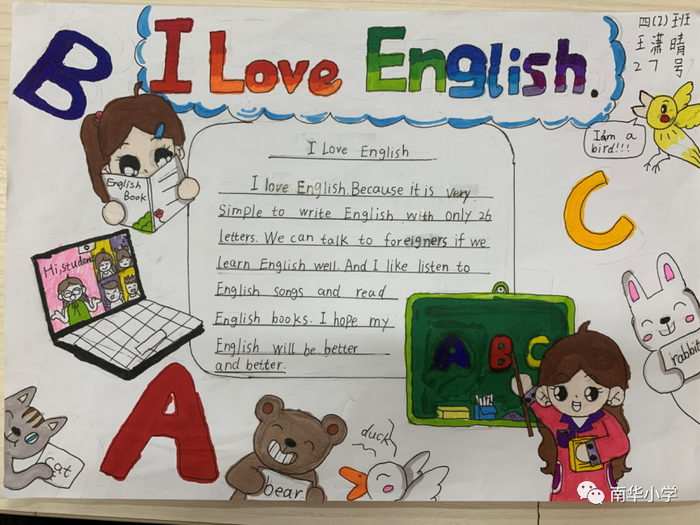 I Love English.
四(2)班
王潇晴
27号
B
I am a bird!!!
English Book
C
Hi, student
I Love English
I love English. Because it is very
Simple to write English with only 26
letters. We can talk to foreigners if we
learn English well. And I like listen to
English songs and read
English books. I hope my
English will be better
and better.
A B C
rabbit
A
cat
bear
duck
南华小学